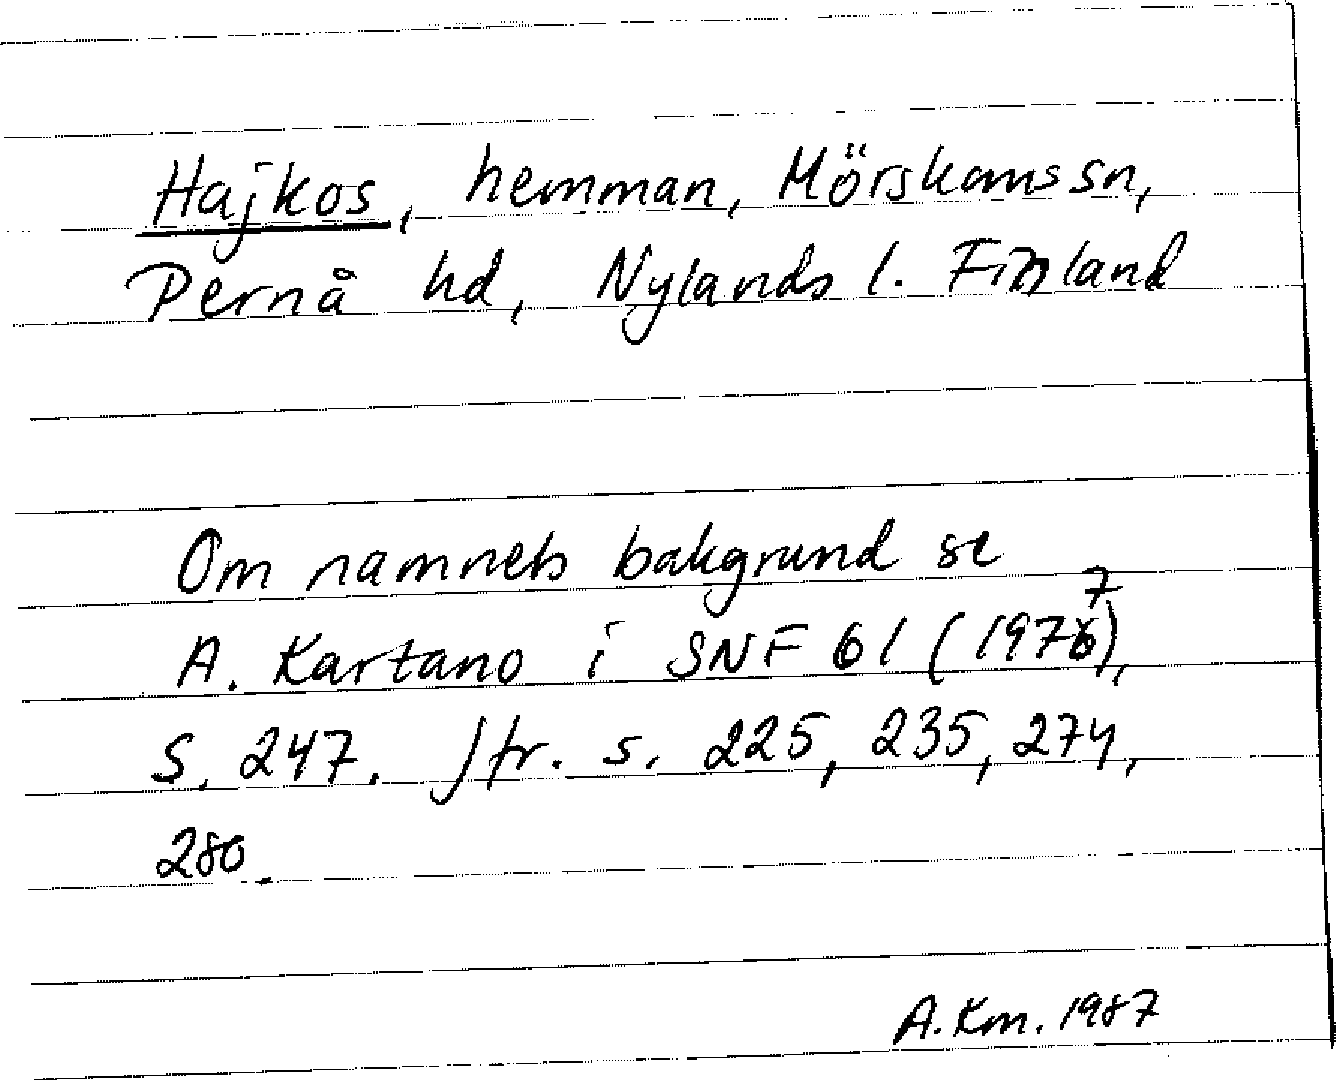 Hajkos, hemman, Mörskoms sn,
Pernå hd, Nylands l. Finland
Om namnets bakgrund se
A. Kartano i SNF 61 (1977),
S. 247. Jfr. s. 225, 235, 274,
280.
A. Km. 1987